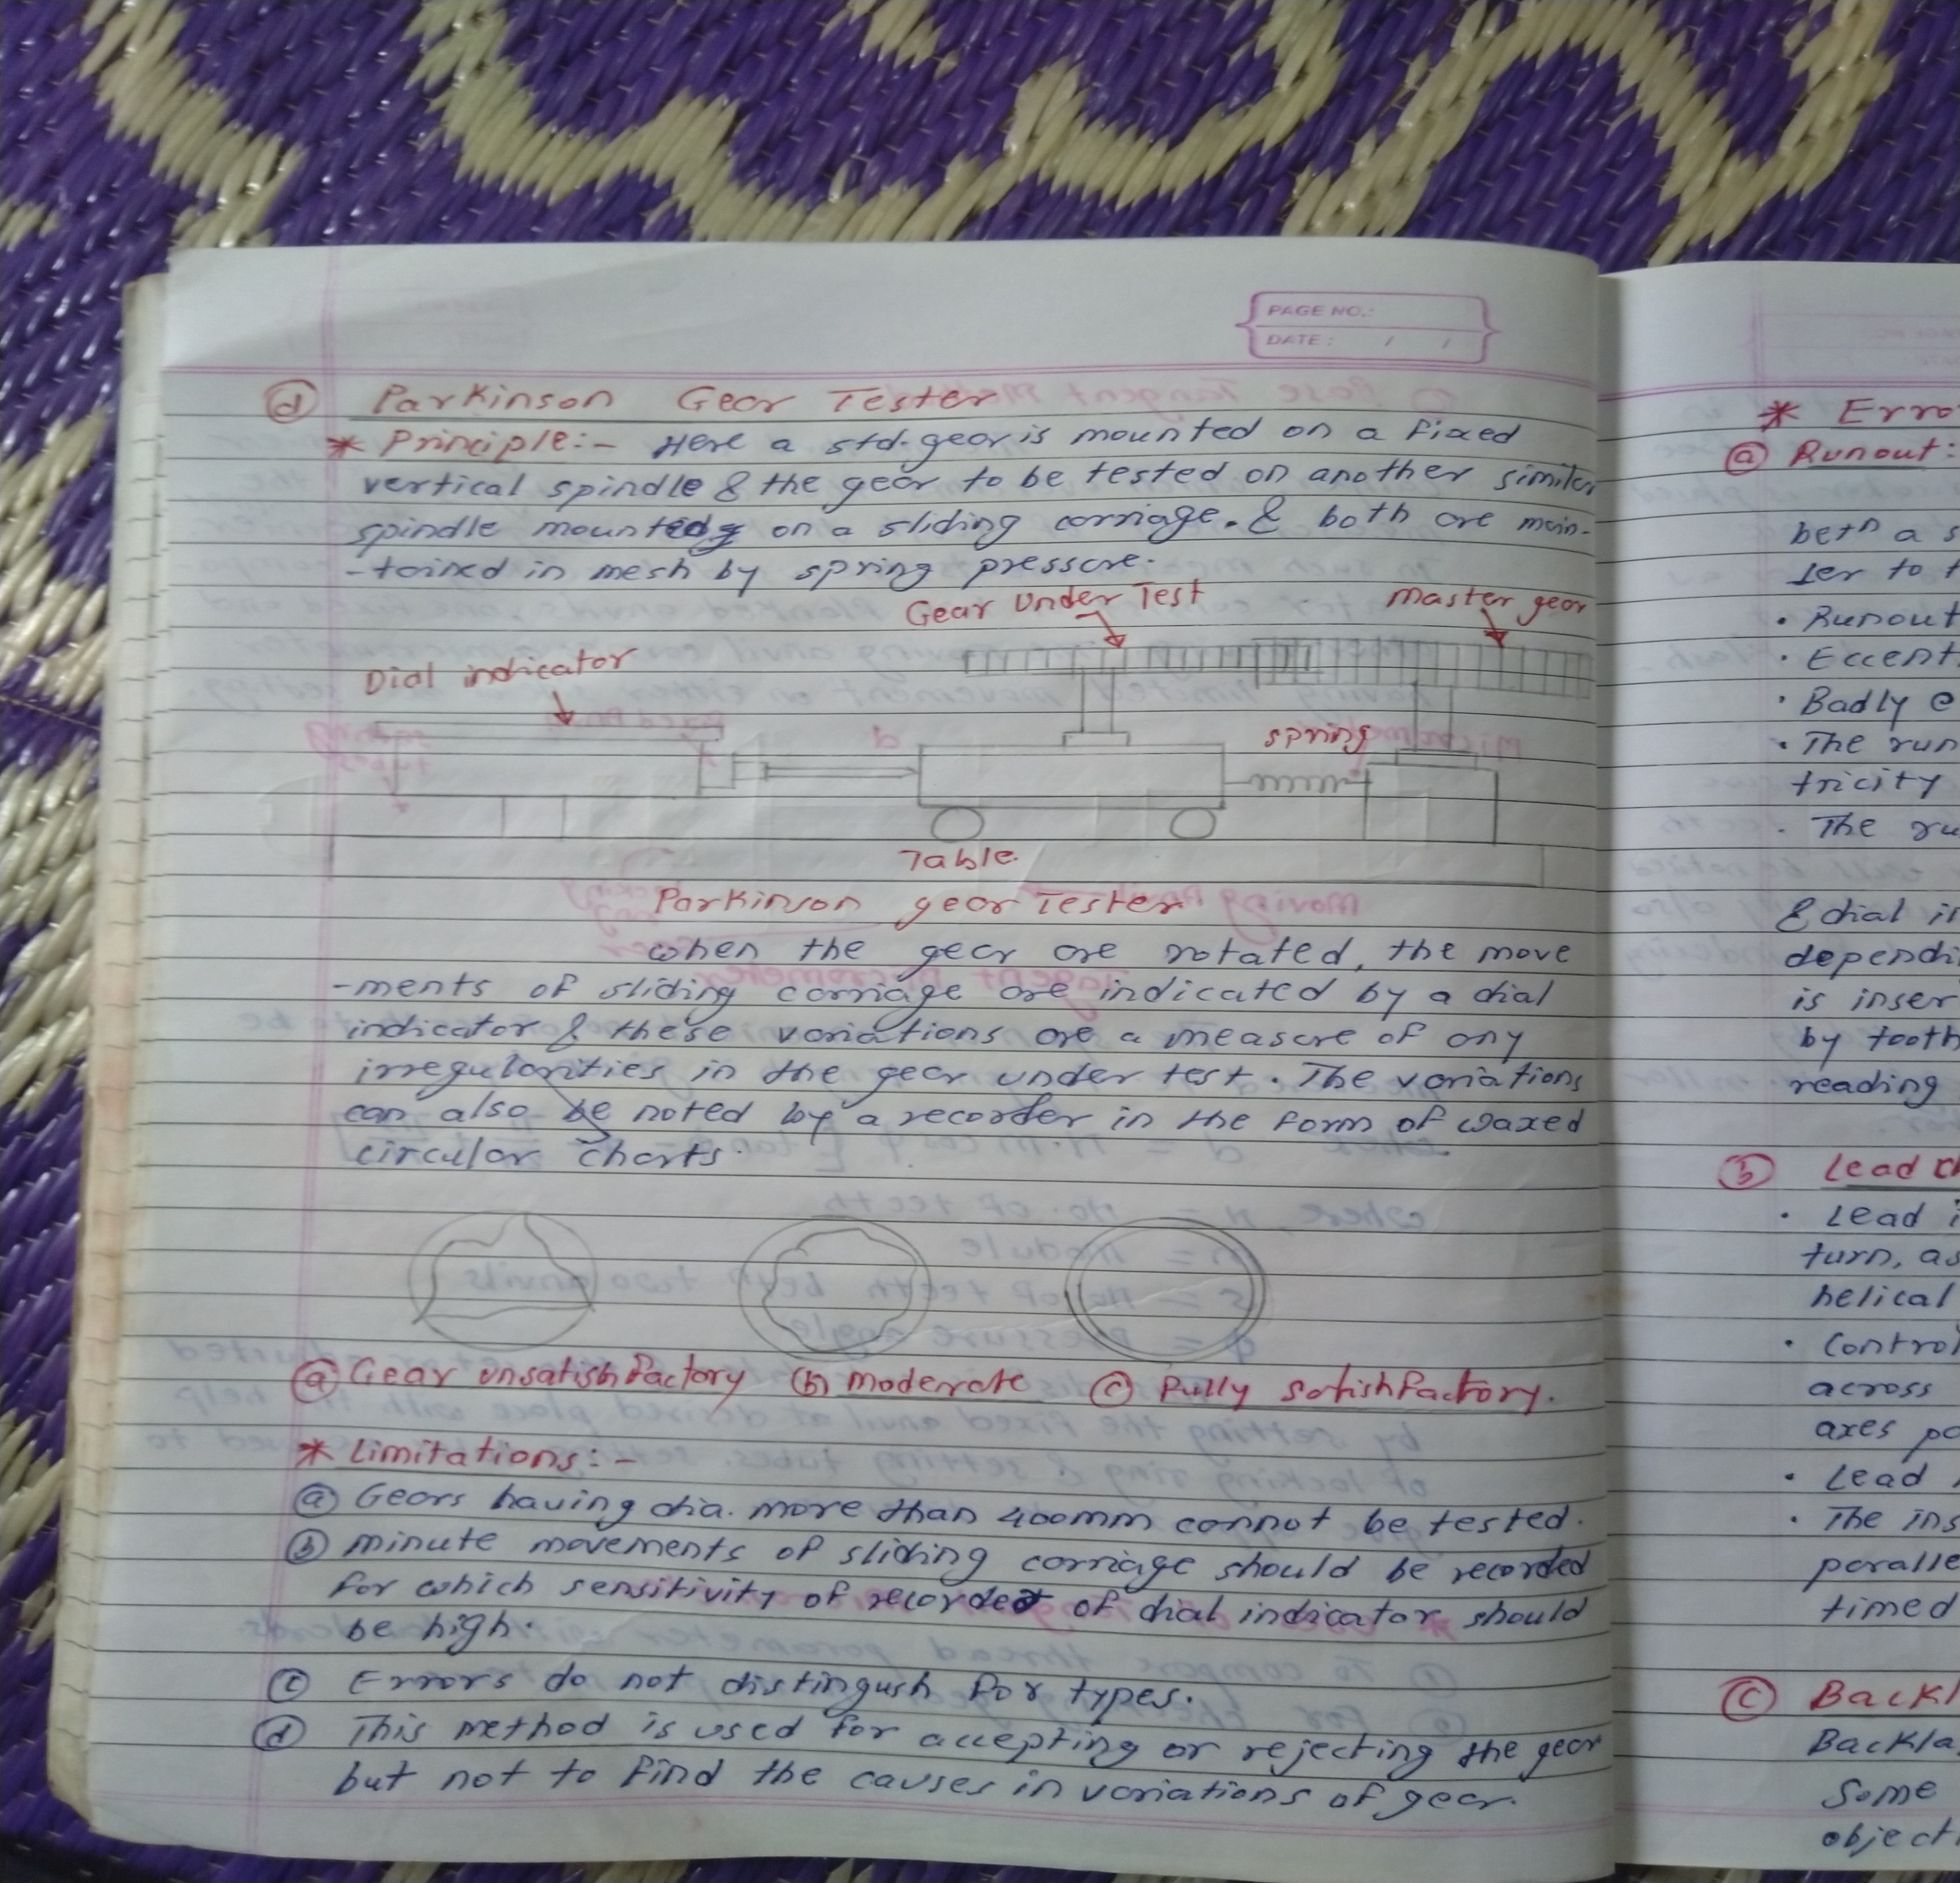 PAGE NO.:
DATE: / /
(d) Parkinson Gear Tester
* Principle:- Here a std. gear is mounted on a fixed
vertical spindle & the gear to be tested on another similar
spindle mounted on a sliding carriage. & both are main-
-tained in mesh by spring pressure.
Gear Under Test
Master gear
Dial indicator
spring
Table
Parkinson gear Tester
when the gear are rotated, the move
-ments of sliding carriage are indicated by a dial
indicator & these variations are a measure of any
irregularities in the gear under test. The variations
can also be noted by a recorder in the form of waxed
circular charts.
(a) Gear unsatishfactory (b) moderate (c) Fully satishfactory.
* Limitations:-
(a) Gears having dia. more than 400mm cannot be tested.
(b) minute movements of sliding carriage should be recorded
for which sensitivity of recorder of dial indicator should
be high.
(c) Errors do not distingush for types.
(d) This method is used for accepting or rejecting the gear
but not to find the causes in variations of gear.
* Erro
(a) Runout:
betn a s
ter to t
• Runout
• Eccent
• Badly e
• The run
tricity
• The ru
& dial i
dependi
is inser
by tooth
reading
(b) Lead ch
• Lead i
turn, as
helical
• Control
across
axes pa
• Lead
• The ins
paralle
timed
(c) Backl
Backla
Some
object